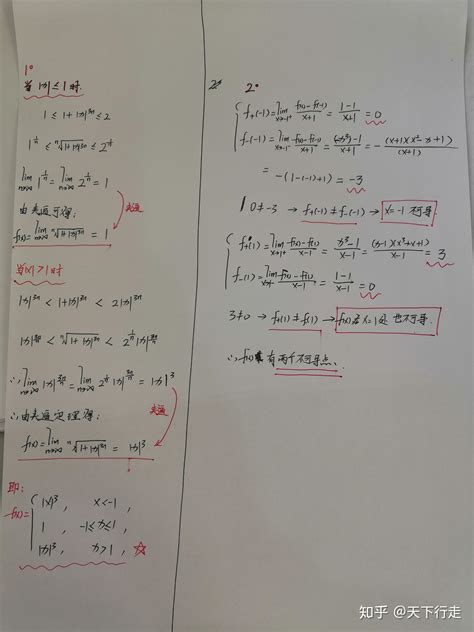 1°
当 |x| ≤ 1 时.
1 ≤ 1+|x|³ⁿ ≤ 2
1^{1/n} ≤ ⁿ√(1+|x|³ⁿ) ≤ 2^{1/n}
lim_{n→∞} 1^{1/n} = lim_{n→∞} 2^{1/n} = 1
由夹逼可得: 夹逼
f(x) = lim_{n→∞} ⁿ√(1+|x|³ⁿ) = 1
当|x|>1时
|x|³ⁿ < 1+|x|³ⁿ < 2|x|³ⁿ
|x|^{3n/n} < ⁿ√(1+|x|³ⁿ) < 2^{1/n}|x|^{3n/n}
∴ lim_{n→∞} |x|^{3n/n} = lim_{n→∞} 2^{1/n}|x|^{3n/n} = |x|³
∴由夹逼定理得: 夹逼
f(x) = lim_{n→∞} ⁿ√(1+|x|³ⁿ) = |x|³
即:
f(x) = { |x|³, x<-1,
1, -1≤x≤1,
|x|³, x>1, ☆
2°
{ f₊'(-1) = lim_{x→-1⁺} (f(x)-f(-1))/(x+1) = (1-1)/(x+1) = 0
f₋'(-1) = lim_{x→-1⁻} (f(x)-f(-1))/(x+1) = ((-x³)-1)/(x+1) = -(x+1)(x²-x+1)/(x+1)
= -(1-(-1)+1) = -3
0≠-3 → f₊'(-1) ≠ f₋'(-1) → x=-1 不可导.
{ f₊'(1) = lim_{x→1⁺} (f(x)-f(1))/(x-1) = (x³-1)/(x-1) = (x-1)(x²+x+1)/(x-1) = 3
f₋'(1) = lim_{x→1⁻} (f(x)-f(1))/(x-1) = (1-1)/(x-1) = 0
3≠0 → f₊'(1) ≠ f₋'(1) → f(x)在x=1处也不可导.
∴ f(x) 有两个不可导点.
知乎 @天下行走